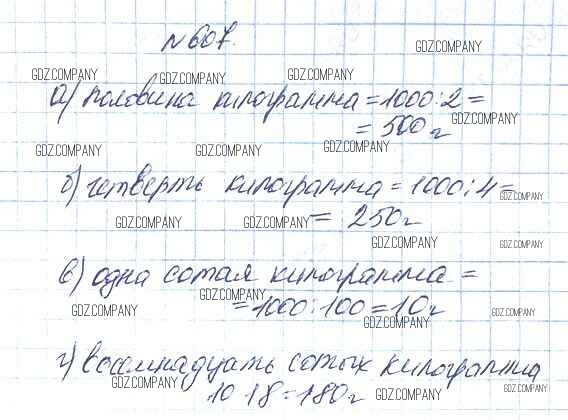 №607.
GDZ.COMPANY
GDZ.COMPANY GDZ.COMPANY GDZ.COMPANY
а) половина килограмма = 1000 : 2 =
GDZ.COMPANY
= 500 г
GDZ.COMPANY GDZ.COMPANY GDZ.COMPANY
б) четверть килограмма = 1000 : 4 =
GDZ.COMPANY
= 250 г
GDZ.COMPANY GDZ.COMPANY
GDZ.COMPANY GDZ.COMPANY
в) одна сотая килограмма =
GDZ.COMPANY
= 1000 : 100 = 10 г
GDZ.COMPANY GDZ.COMPANY GDZ.COMPANY
г) восемнадцать сотых килограмма
GDZ.COMPANY GDZ.COMPANY GDZ.COMPANY
10 18 = 180 г